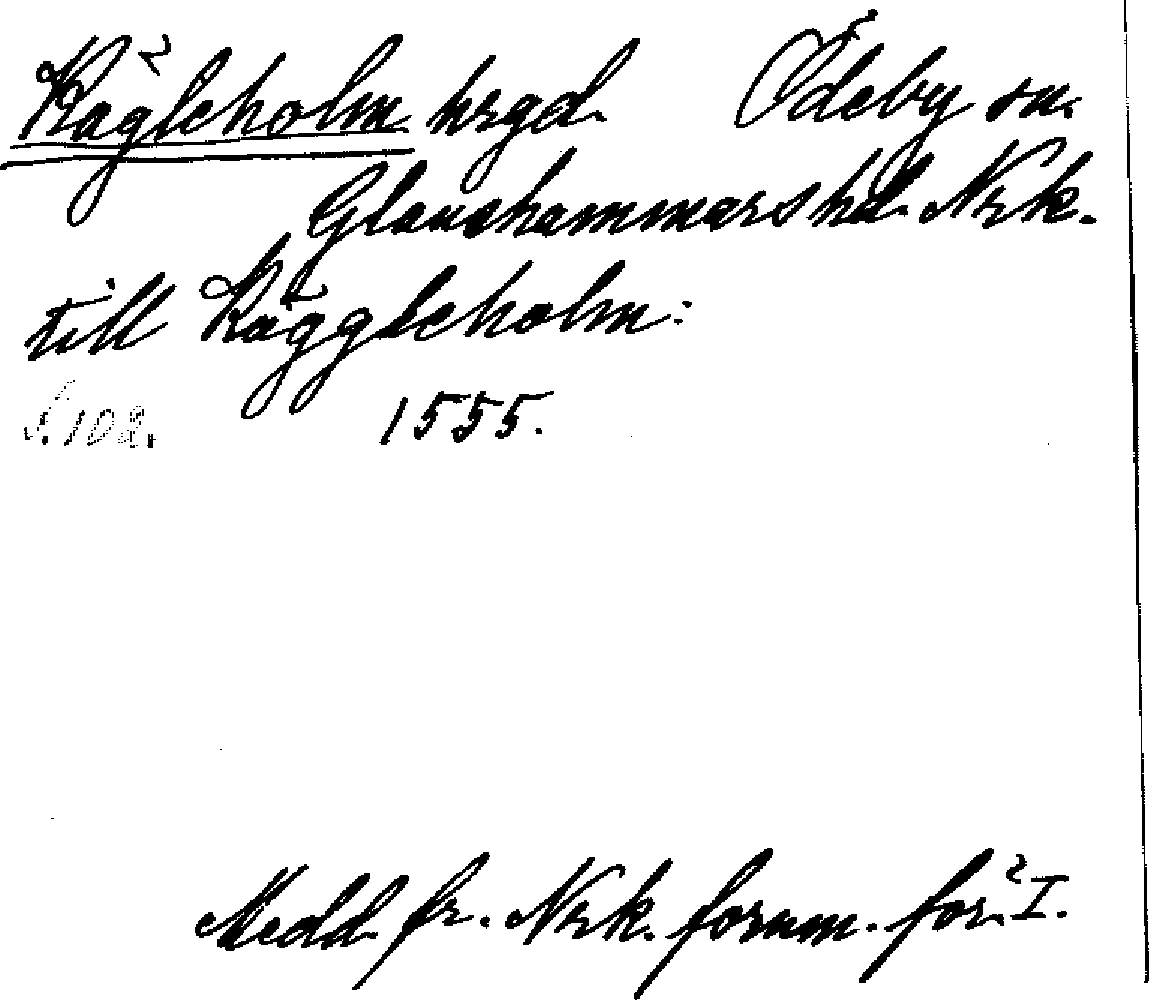 Kägleholm hrgd. Ödeby sn.
Glanshammars hd. Nrk.
till Käggleholm:
S. 102. 1555.
Medd. fr. Nrk. fornm. för. I.